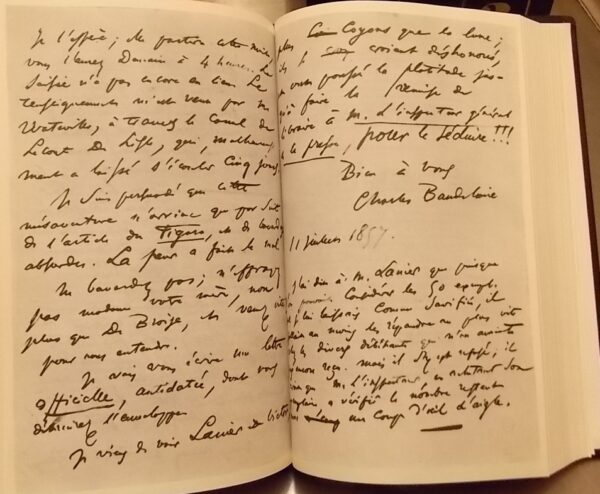 Je l'affie; elle partira cette nuit,
vous l'aurez Demain à 4 heures. La
Saisie n'a pas encore eu lieu. Le
renseignement m'est venu par M.
Watteville, à travers le Canal de
Leconte De Lisle, qui, malheureuse
ment a laissé s'écouler Cinq jours
Je suis persuadé que cette
mésaventure n'arrive que par suite
de l'article du Figaro, et de bavardages
absurdes. La peur a fait le mal.
Ne bavardez pas; n'effrayez
pas madame votre mère, non
plus que De Broise, et venez vite
pour nous entendre.
Je vais vous écrire une lettre
Officielle, antidatée, dont vous
détruirez l'enveloppe
Je viens de voir Lanier et Victor
que la lune;
ils se croient déshonorés,
ont poussé la platitude jus-
qu'à faire la remise de
libraire à M. l'inspecteur général
de la presse, pour le séduire!!!
Bien à vous
Charles Baudelaire
11 Juillet 1857.
J'ai dit à M. Lanier que puisque
pouvions considérer les 50 exempl.
laissais comme sacrifiés, il
fallait au moins les répandre au plus vite
chez les divers détaillants qui n'en avaient
reçu. mais il s'y est refusé; il
que M. l'inspecteur, en achetant son
exemplaire a vérifié le nombre restant
un coup d'œil d'aigle.